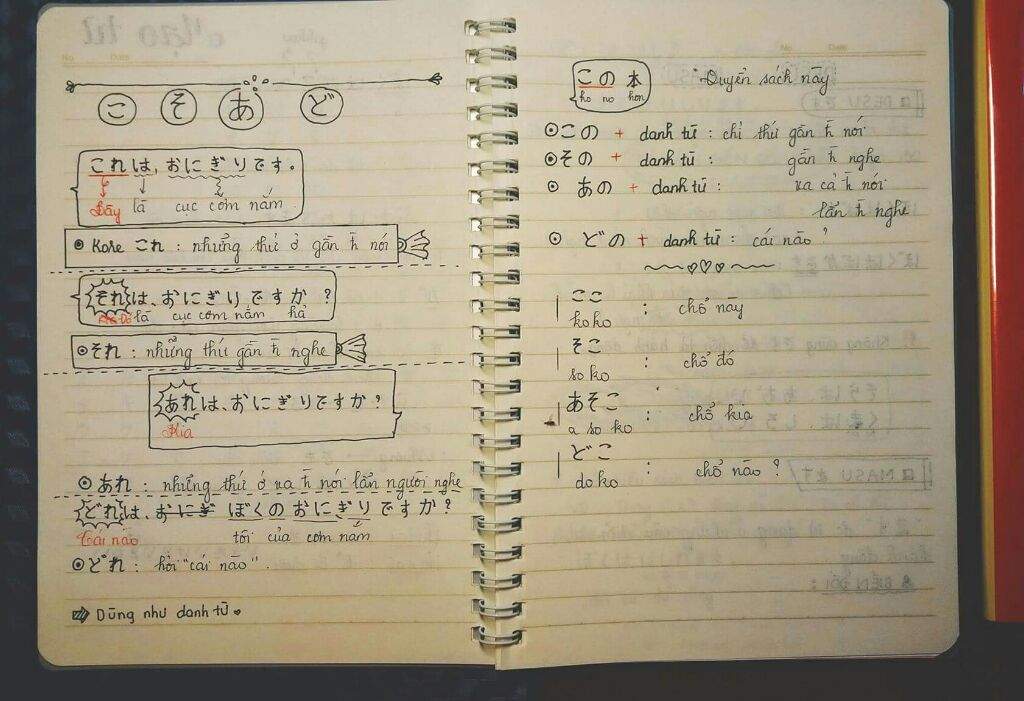 こ そ あ ど
これは、おにぎりです。
Đây là cục cơm nắm
Kore これ : những thứ ở gần n̄ nói
それは、おにぎりですか?
Đó là cục cơm nắm hả
それ : những thứ gần n̄ nghe
あれは、おにぎりですか?
Kia
あれ : những thứ ở xa n̄ nói lẫn người nghe
どれは、おにぎ ぼくのおにぎりですか?
Cái nào tôi của cơm nắm
どれ : hỏi "cái nào".
Dùng như danh từ
この 本 Quyển sách này
ko no hon
この + danh từ : chỉ thứ gần n̄ nói
その + danh từ : gần n̄ nghe
あの + danh từ : xa cả n̄ nói
lẫn n̄ nghe
どの + danh từ : cái nào?
ここ
koko : chổ này
そこ
so ko : chổ đó
あそこ
a so ko : chổ kia
どこ
do ko : chổ nào ?